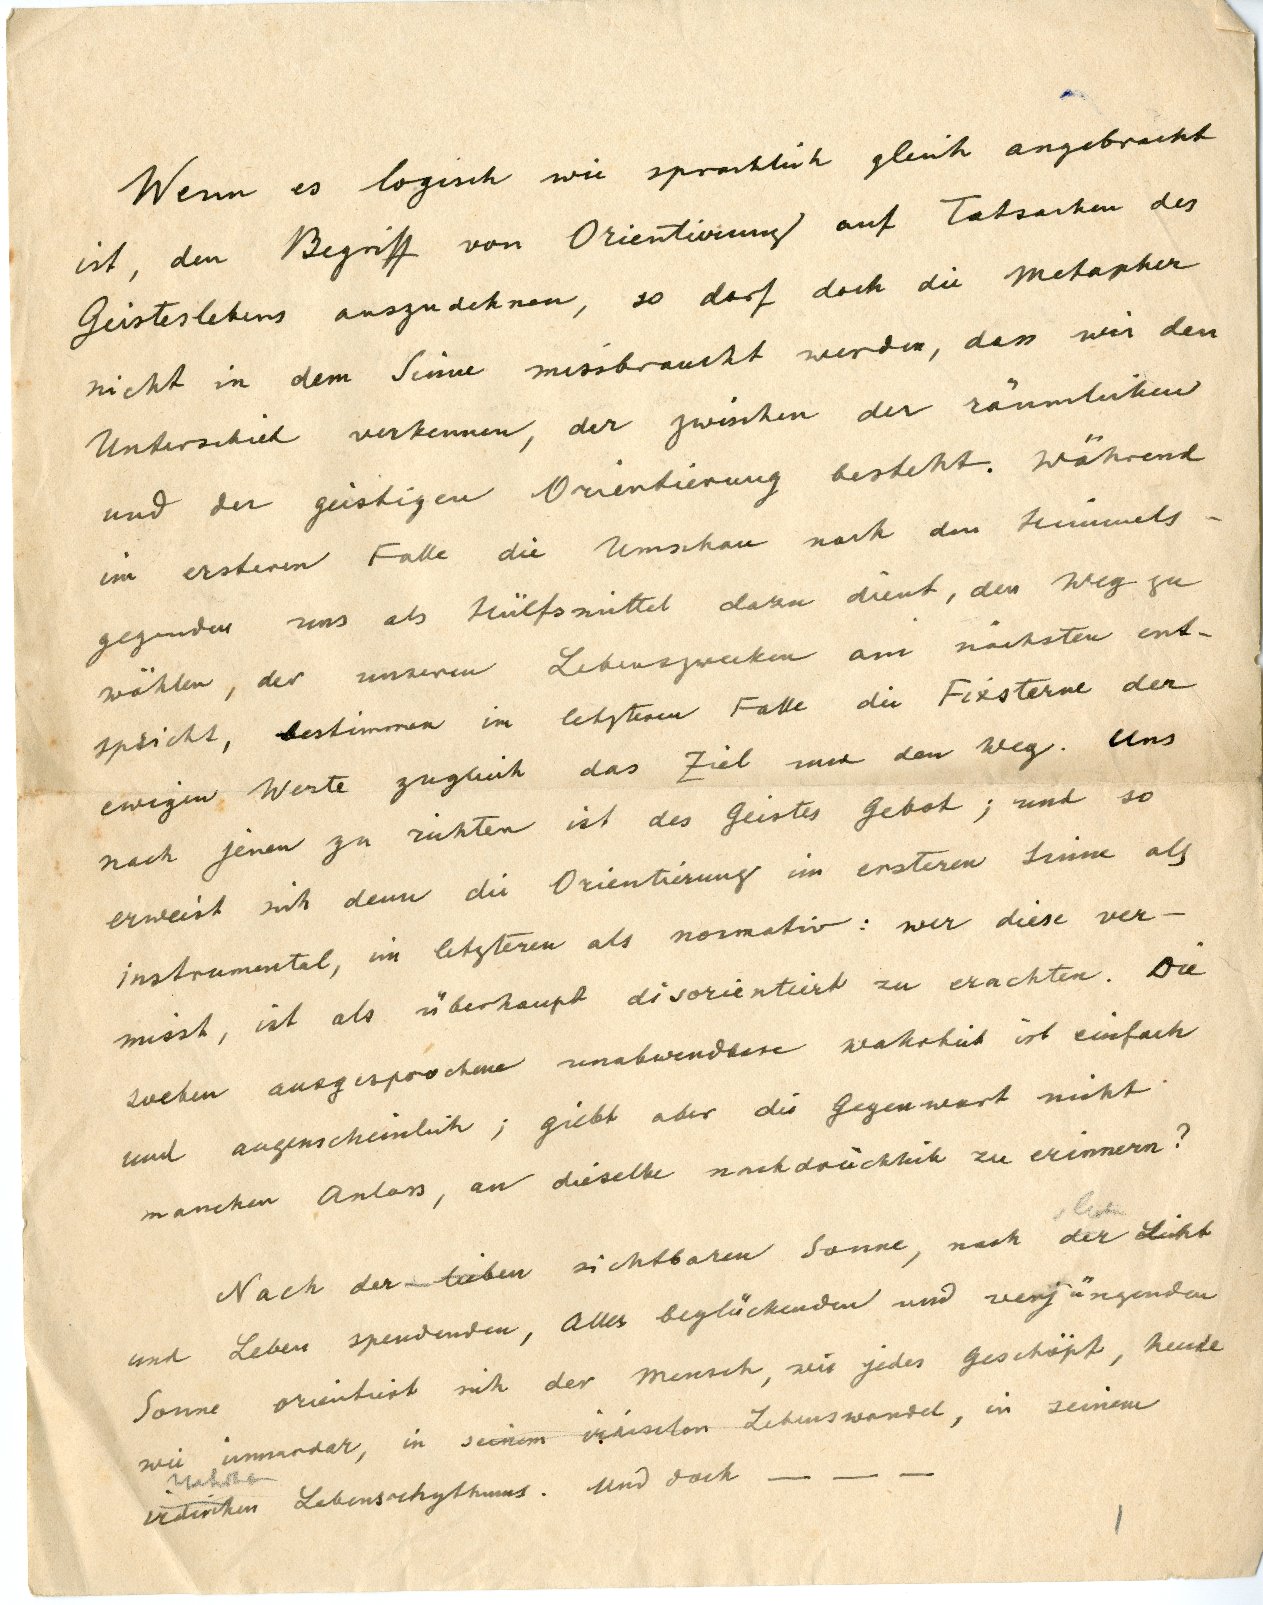 Wenn es logisch wie sprachlich gleich angebracht
ist, den Begriff von Orientierung auf Tatsachen des
Geisteslebens auszudehnen, so darf doch die Metapher
nicht in dem Sinne missbraucht werden, dass wir den
Unterschied verkennen, der zwischen der räumlichen
und der geistigen Orientierung besteht. Während
im ersteren Falle die Umschau nach den Himmels-
gegenden uns als Hülfsmittel dazu dient, den Weg zu
wählen, der unseren Lebenszwecken am nächsten ent-
spricht, bestimmen im letzteren Falle die Fixsterne der
ewigen Werte zugleich das Ziel und den Weg. Uns
nach jenen zu richten ist des Geistes Gebot; und so
erweist sich denn die Orientierung im ersteren Sinne als
instrumental, im letzteren als normativ: wer diese ver-
misst, ist als überhaupt disorientiert zu erachten. Die
soeben ausgesprochene unabwendbare Wahrheit ist einfach
und augenscheinlich; giebt aber die Gegenwart nicht
manchen Anlass, an dieselbe nachdrücklich zu erinnern?
Nach der lieben sichtbaren Sonne, nach der Licht
und Leben spendenden, Alles beglückenden und verjüngenden
Sonne orientiert sich der Mensch, wie jedes Geschöpf, heute
wie immerdar, in seinem irdischen Lebenswandel, in seinem
irdischen Lebensrhythmus. Und doch — — —
1